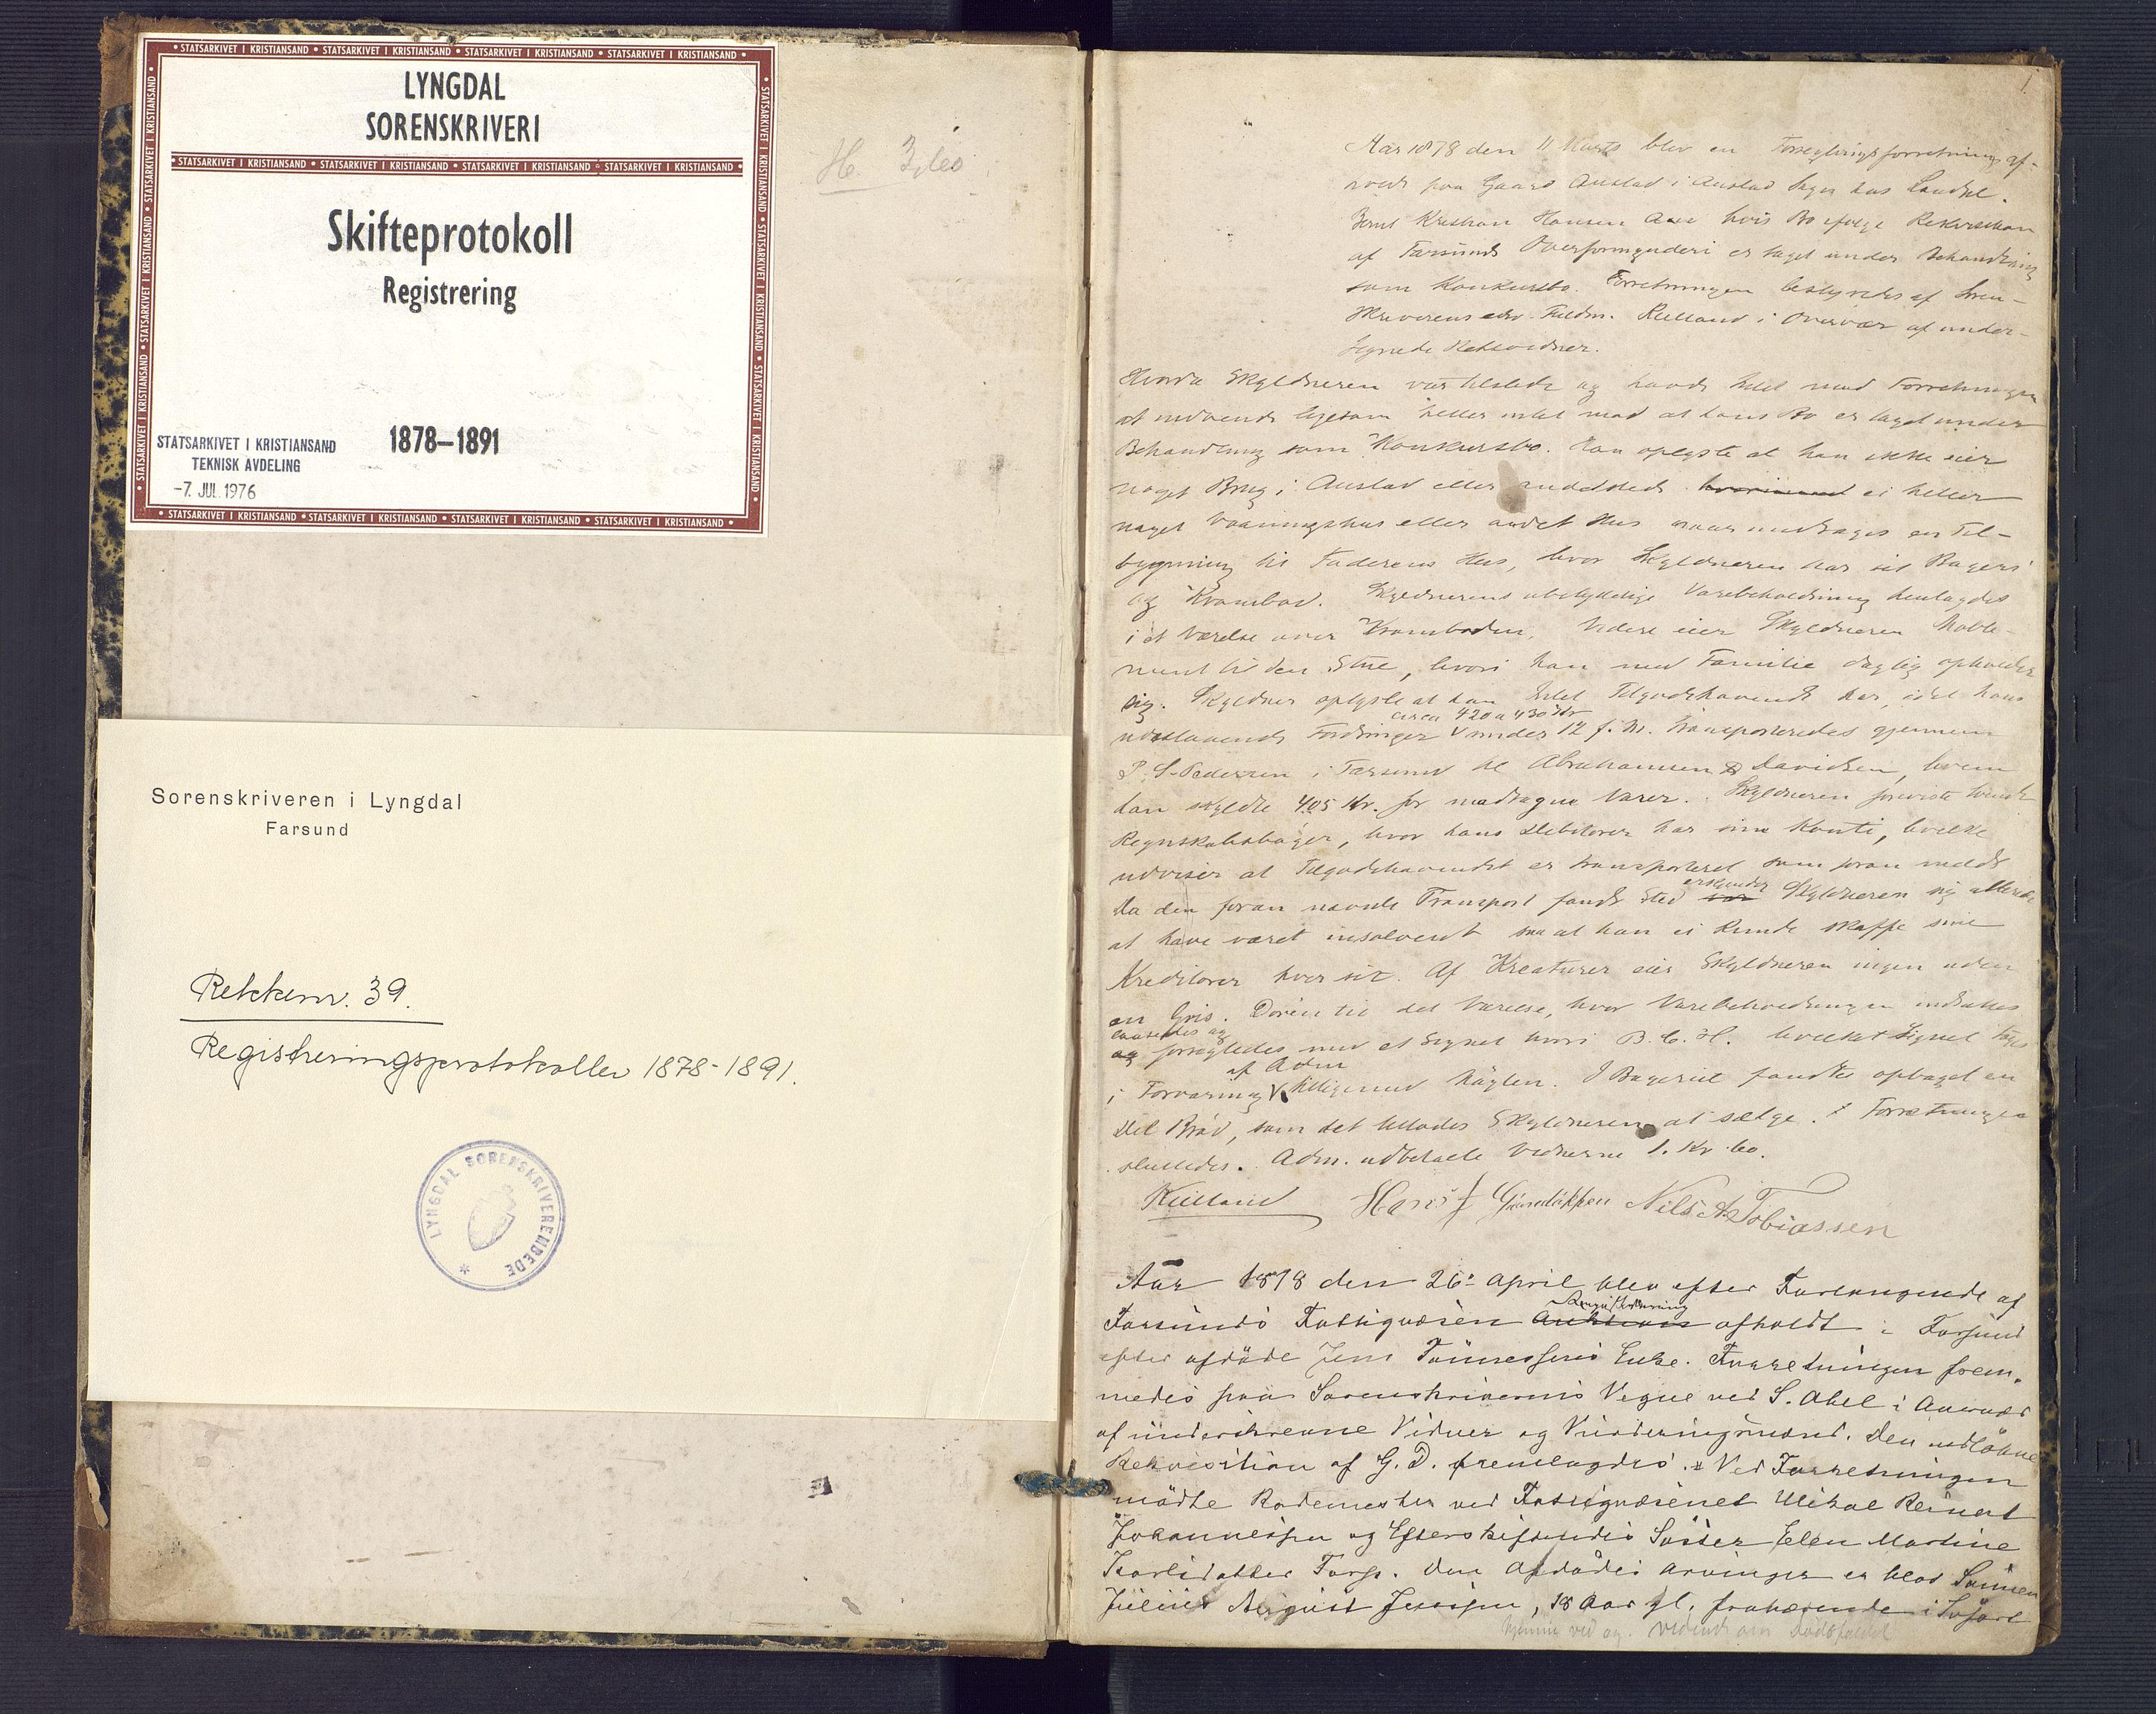 STATSARKIVET I KRISTIANSAND • STATSARKIVET I KRISTIANSAND • STATSARKIVET I KRISTIANSAND • STATSARKIVET I KRISTIANSAND
LYNGDAL
SORENSKRIVERI
STATSARKIVET I KRISTIANSAND • STATSARKIVET I KRISTIANSAND • STATSARKIVET I KRISTIANSAND • STATSARKIVET I KRISTIANSAND
Skifteprotokoll
Registrering
1878–1891
STATSARKIVET I KRISTIANSAND
TEKNISK AVDELING
-7. JUL. 1976
STATSARKIVET I KRISTIANSAND • STATSARKIVET I KRISTIANSAND • STATSARKIVET I KRISTIANSAND • STATSARKIVET I KRISTIANSAND
Sorenskriveren i Lyngdal
Farsund
Rekkenr. 39.
Registreringsprotokoller 1878-1891.
LYNGDAL SORENSKRIVEREMBEDE
1.
Aar 1878 den 11 Marts blev en Forseglingsforretning af-
holdt paa Gaard Austad i Austad Sogn hos Landhdl.
Bernt Kristian Hansen hvis Bo ifølge Rekvisition
af Farsunds Overformynderi er taget under Behandling
som Konkursbo. Forretningen bestyredes af Soren-
skriverens Fuldm. Kielland i Overvær af under-
tegnede Retsvidner.
Skyldneren var tilstede og havde Intet mod Forretningen
at indvende ligesom heller intet mod at hans Bo er taget under
Behandling som Konkursbo. Han oplyste at han ikke eier
noget Brug i Austad eller andetsteds ei heller
noget Vaaningshus eller andet Hus naar undtages en Til-
bygning til Faderens Hus, hvor Skyldneren har sit Bageri
og Krambod. Skyldnerens ubetydelige Varebeholdning henlagdes
i et Værelse over Kramboden. Videre eier Skyldneren Møble-
ment til den Stue, hvori han med Familie daglig opholder
sig. Skyldner oplyste at han Intet Tilgodehavende har, idet hans
circa 420 a 430 Kr
udestaaende Fordringer under 12 f. M. transporteredes gjennem
P. S. Pedersen i Farsund til Abrahamsen & Davidsen, hvem
han skyldte 405 Kr. for modtagne Varer. Skyldneren foreviste
Regnskabsbøger, hvor hans Debitorer har sine Konti, hvilke
udviser at Tilgodehavendet er transporteret som foran meldt
erkjender
Da den foran nævnte Transport fandt Sted Skyldneren sig allerede
at have været insolvent saa at han ei kunde skaffe sine
Kreditorer hver sit. Af Kreaturer eier Skyldneren ingen uden
en Gris. Døren til det Værelse, hvor Varebeholdningen indsattes
laasedes og
forsegledes med et Signet hvori B. C. H. hvilket Signet toges
af Adm
i Forvaring tilligemed Nøglen. I Bageriet fandtes opbaget en
Del Brød, som det tillodes Skyldneren at sælge. Forretningen
sluttedes. Adm. udbetalte Vidnerne 1. Kr. 60.
Kielland Nils A. Tobiassen
Aar 1878 den 26 April blev efter Forlangende af
Registrering
Farsunds Fattigvæsen Auktion afholdt i Farsund
efter afdøde Jens Tønnessens Enke. Forretningen frem-
medes paa Sorenskriverens Vegne ved S. Abel i Overvær
af underskrevne Vidner og Vurderingsmænd. Den
Rekvisition af G. D. fremlagdes. Ved Forretningen
mødte Rodemester ved Fattigvæsenet Mikal Reinert
Johannessen og Søster Elen Martine
Farsd. Den Afdødes Arvinger er blot Sønnen
Julius August Jensen, 18 Aar gl. fraværende i Søfart
ved og. vidende om Dødsfaldet